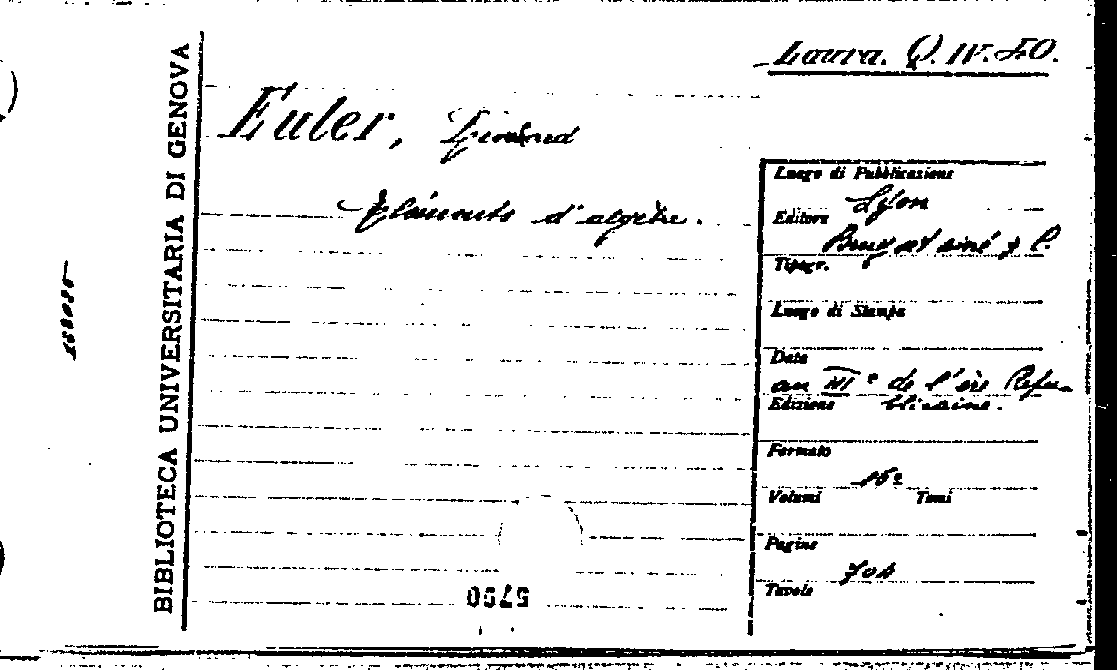 Laura. Q. IV. 50.
BIBLIOTECA UNIVERSITARIA DI GENOVA
Euler,
Éléments d'algèbre.
Luogo di Pubblicazione
Lyon
Editore
Bruyset ainé & C.
Tipogr.
Luogo di Stampa
Data
an III° de l'ère Repu-
blicaine.
Edizione
Formato
16°
Volumi Tomi
Pagine
704
Tavole